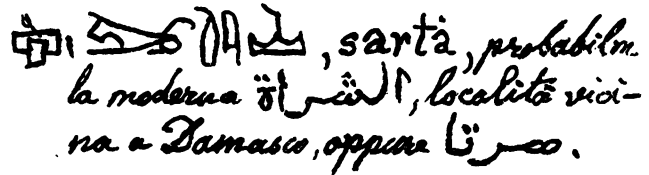 , sarta, probabilm.
la moderna الشراة, località vici-
na a Damasco, oppure صرتا.